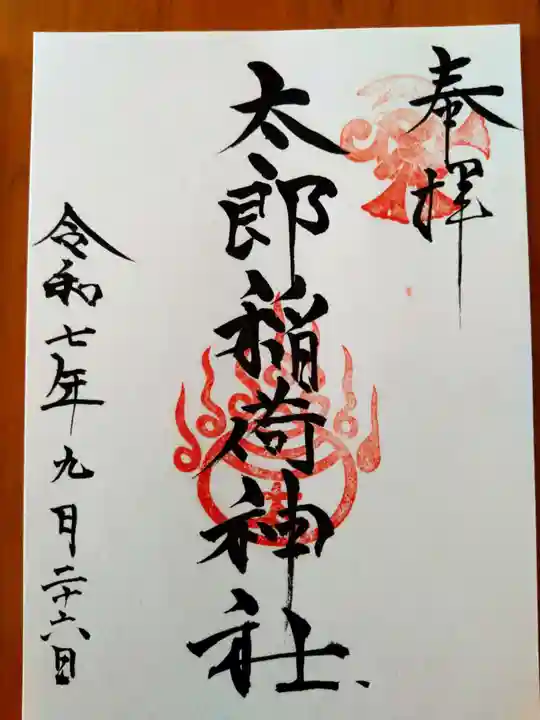 奉拝
太郎稲荷神社
令和七年九月二十六日